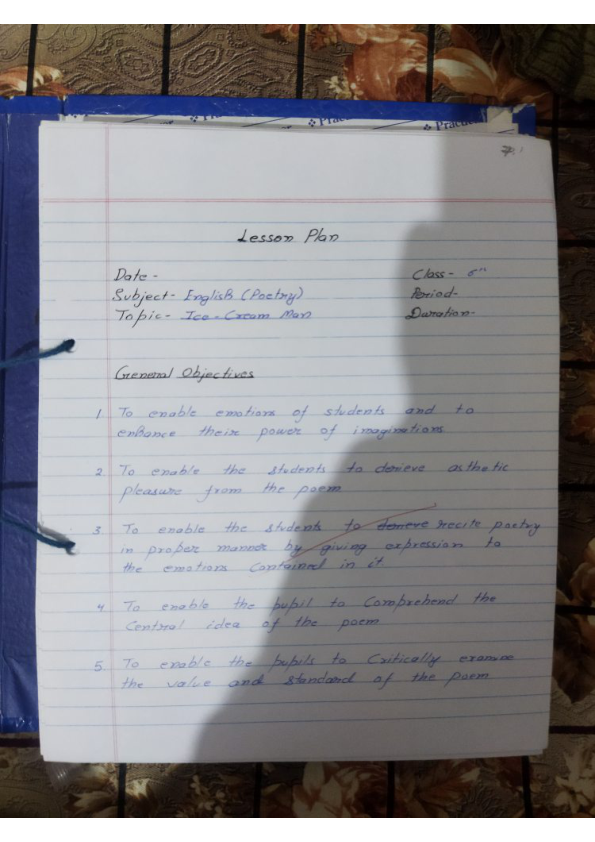 Practical
Lesson Plan
Date -
Class - 6th
Subject - English (Poetry)
Period -
Topic - Ice-Cream Man
Duration -
General Objectives
1. To enable emotions of students and to
enhance their power of imaginations
2. To enable the students to derieve asthetic
pleasure from the poem
3. To enable the students to derieve recite poetry
in proper manner by giving expression to
the emotions Contained in it
4 To enable the pupil to Comprehend the
Central idea of the poem
5. To enable the pupils to Critically examine
the value and standard of the poem